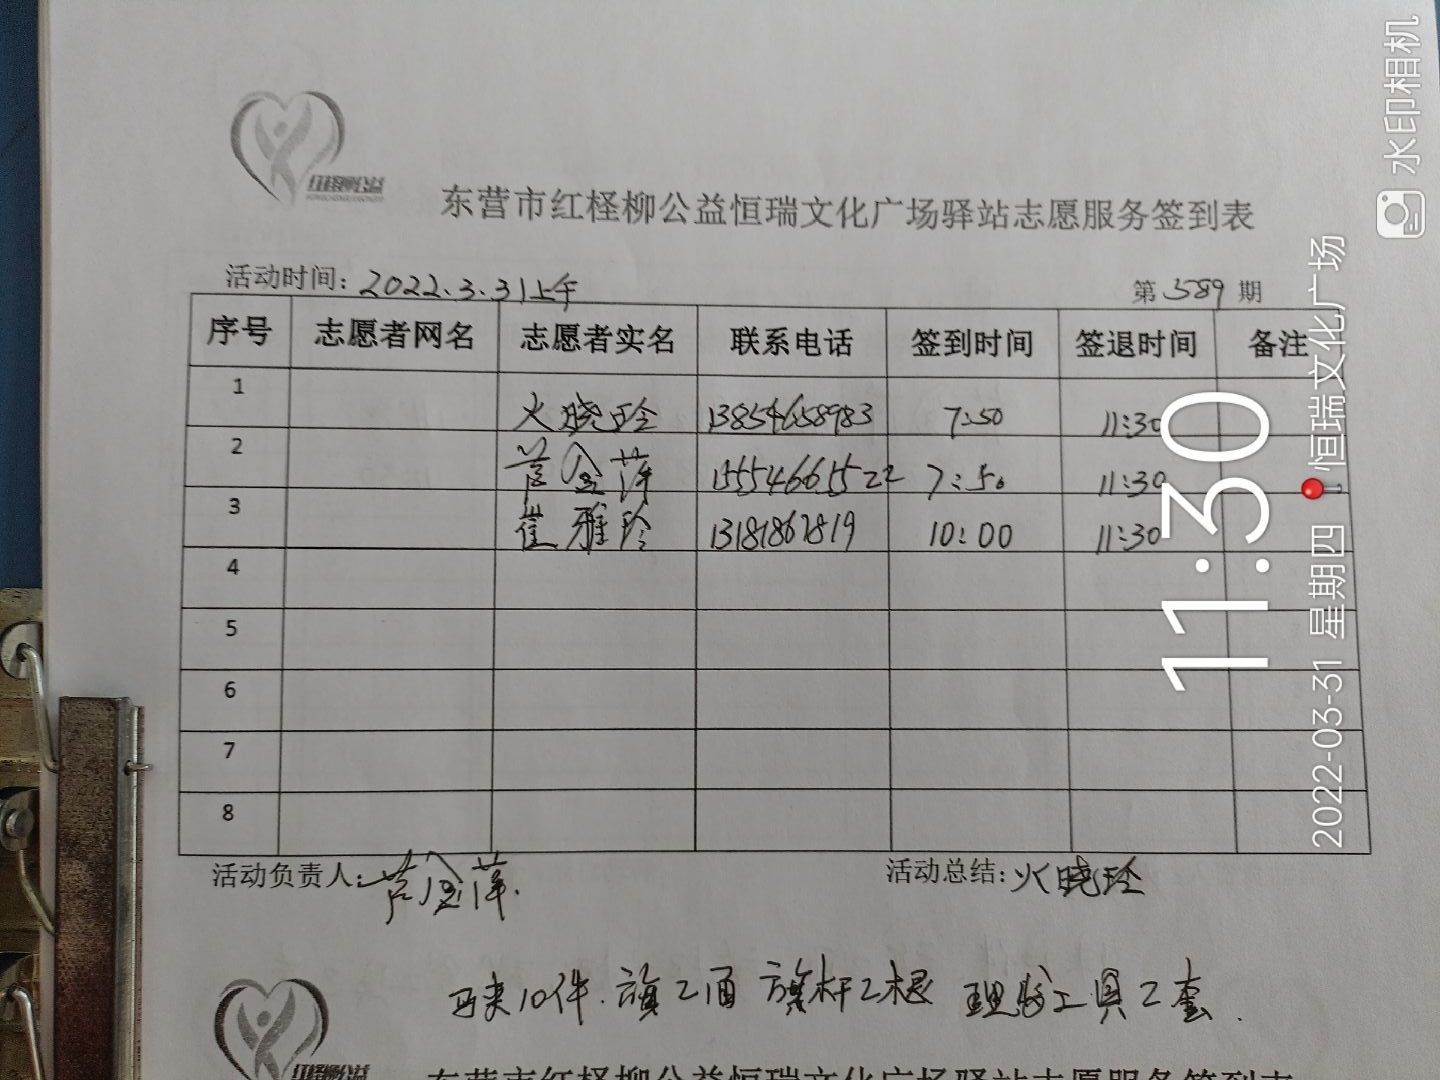 红柽柳公益
东营市红柽柳公益恒瑞文化广场驿站志愿服务签到表
活动时间：2022.3.31上午 第 589 期
序号 志愿者网名 志愿者实名 联系电话 签到时间 签退时间 备注
1 火晓玲 13854658983 7:50 11:30
2 芦金萍 15554665522 7:50 11:30
3 崔雅玲 13181862819 10:00 11:30
4
5
6
7
8
活动负责人：芦金萍. 活动总结：火晓玲
马夹10件.旗2面 旗杆2根 理发工具2套.
红柽柳公益
东营市红柽柳公益恒瑞文化广场驿站志愿服务签到表
11:30
2022-03-31 星期四 恒瑞文化广场
水印相机